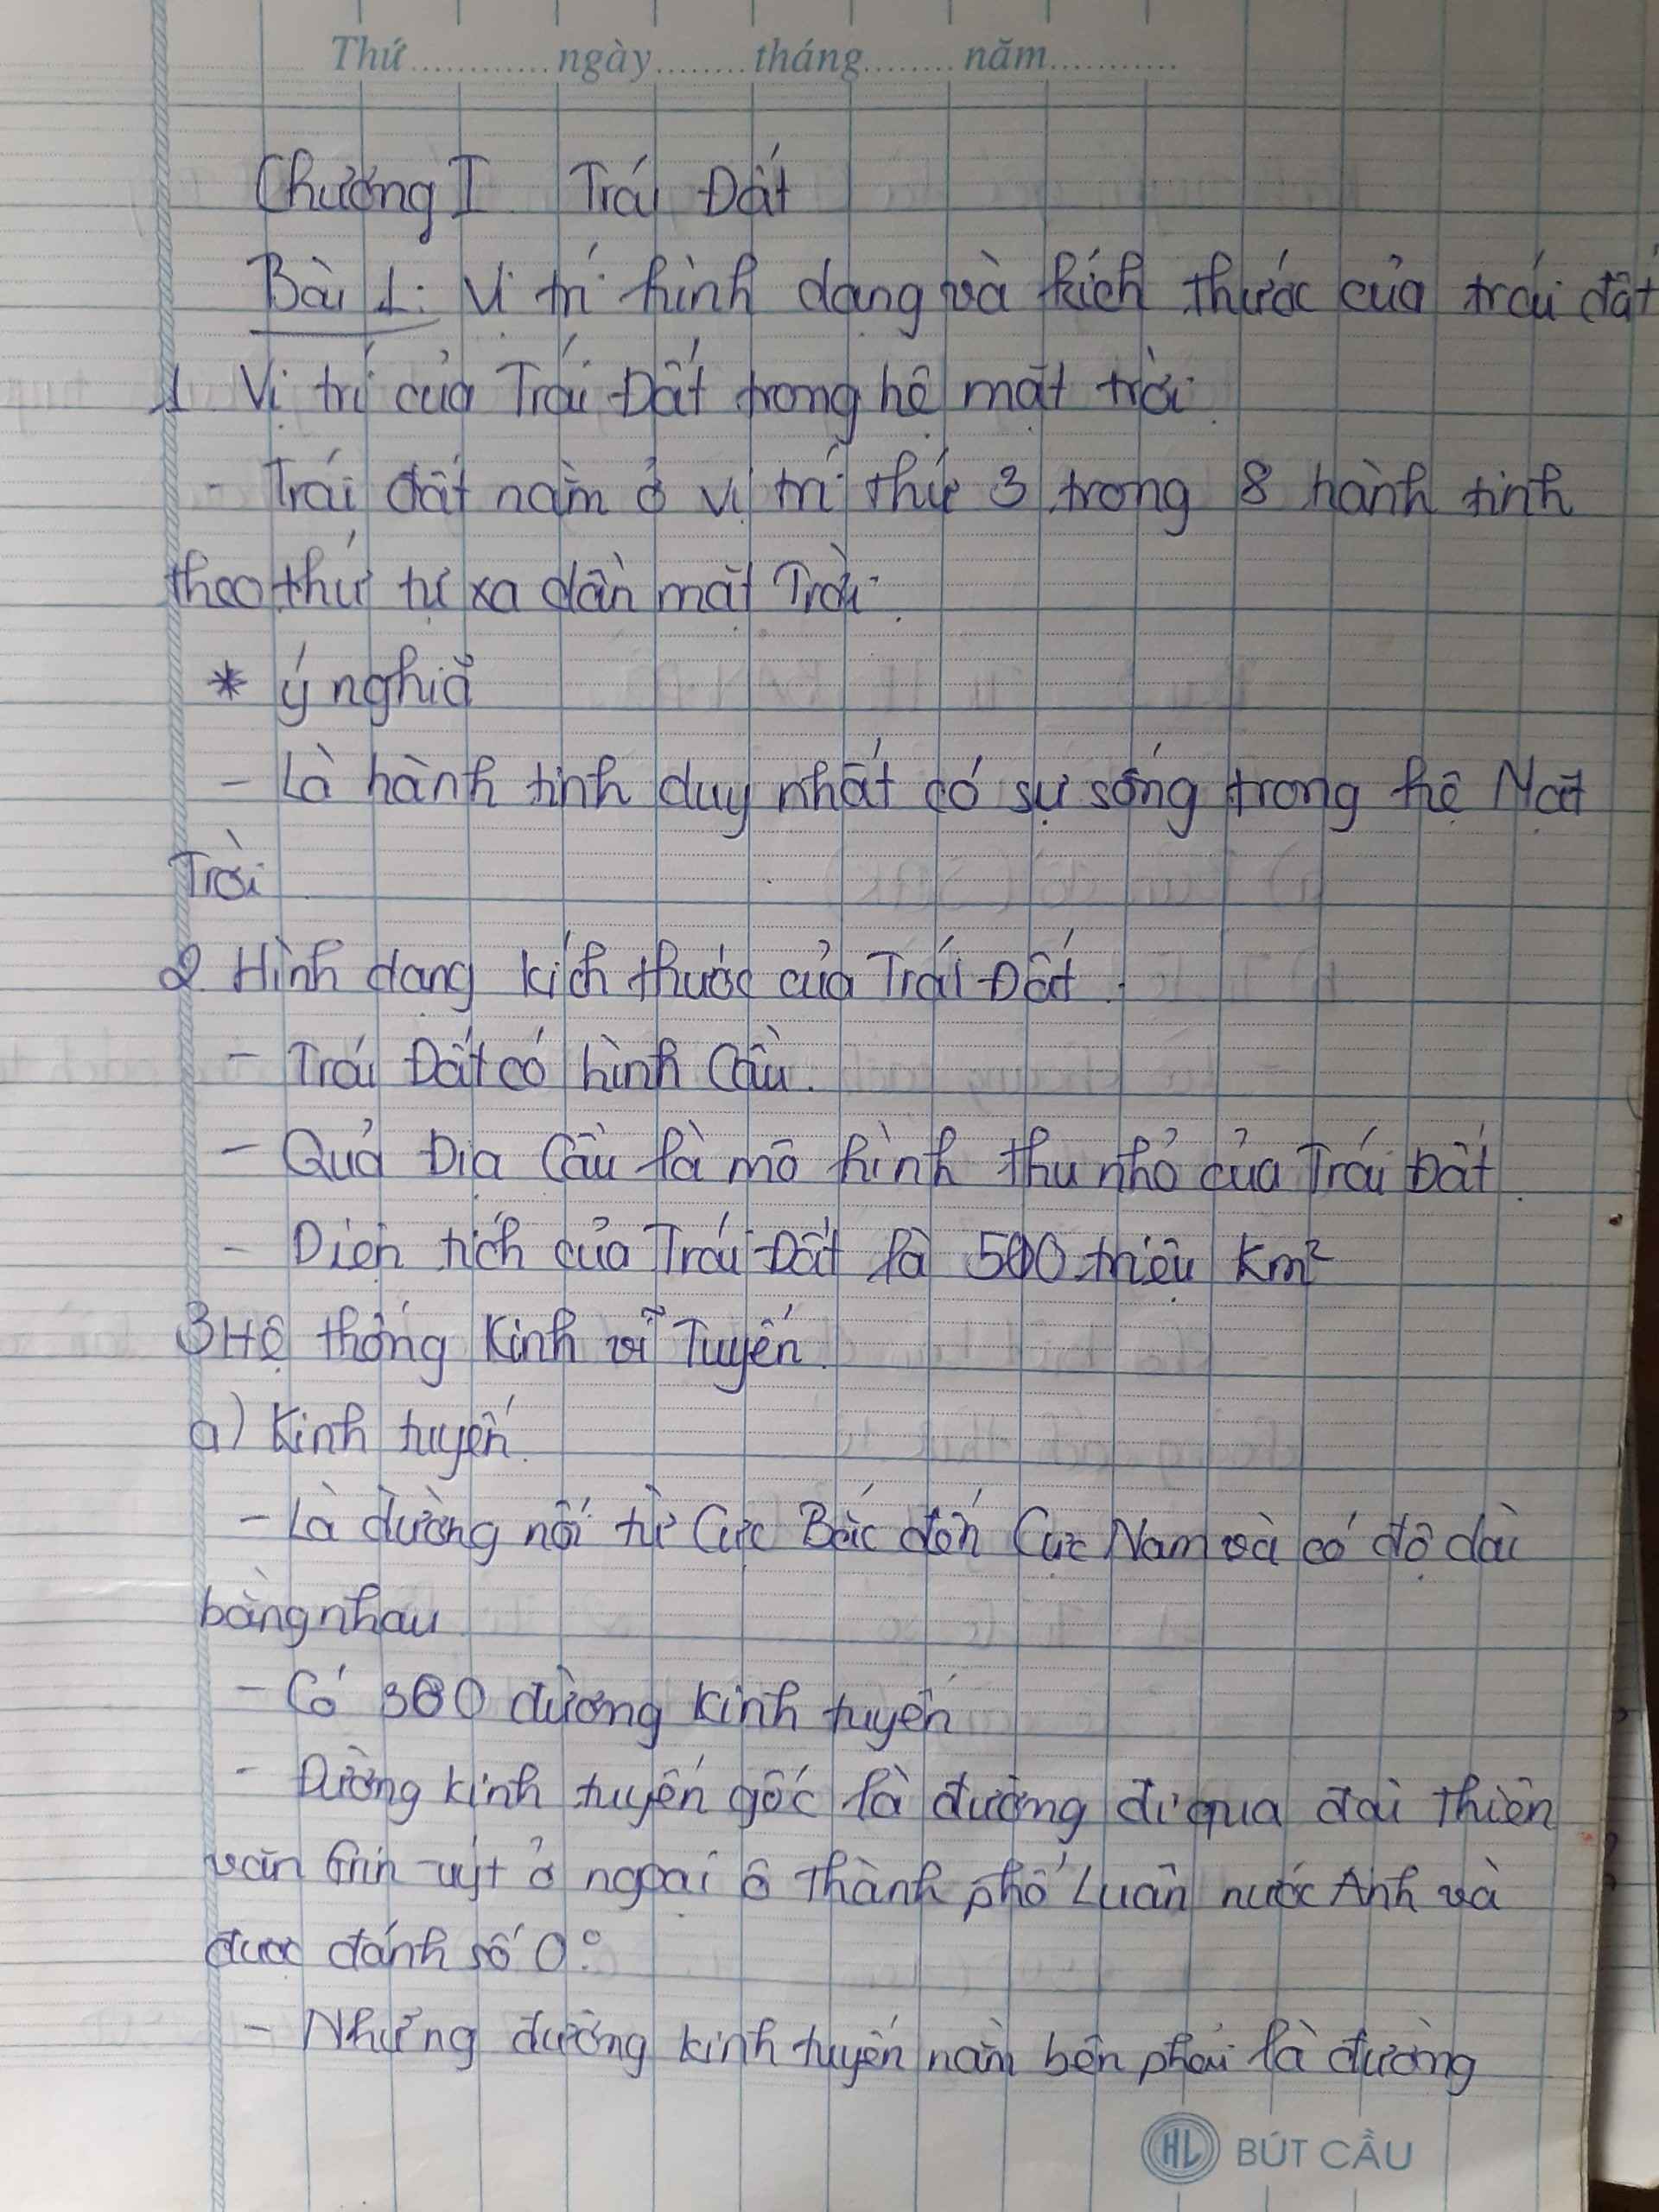 Thứ............ngày........tháng........năm...........
Chương I Trái Đất
Bài 1: Vị trí hình dạng và kích thước của trái đất
1 Vị trí của Trái Đất trong hệ mặt trời
- Trái đất nằm ở vị trí thứ 3 trong 8 hành tinh
theo thứ tự xa dần mặt Trời.
* ý nghĩa
- Là hành tinh duy nhất có sự sống trong hệ Mặt
Trời
2 Hình dạng kích thước của Trái Đất.
- Trái Đất có hình Cầu.
- Quả Địa Cầu là mô hình thu nhỏ của Trái Đất.
- Diện tích của Trái Đất là 510 triệu km²
3 Hệ thống Kinh vĩ Tuyến.
a) Kinh tuyến.
- Là đường nối từ Cực Bắc đến Cực Nam và có độ dài
bằng nhau.
- Có 360 đường kinh tuyến
- Đường kinh tuyến gốc là đường đi qua đài thiên
văn Grin-uýt ở ngoại ô thành phố Luân nước Anh và
được đánh số 0°.
- Những đường kinh tuyến nằm bên phải là đường
HL BÚT CẦU